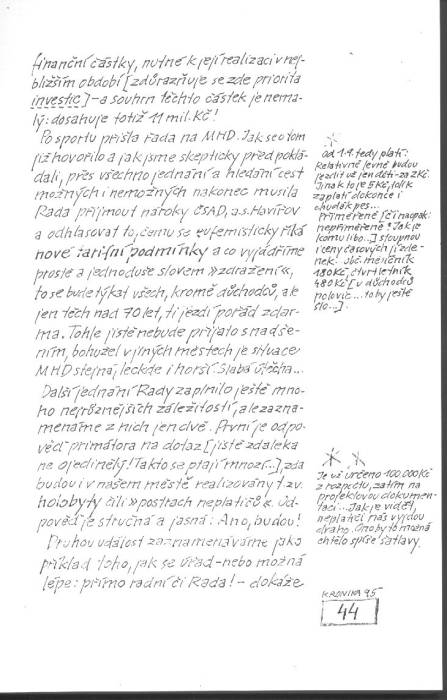 finanční částky, nutné k její realizaci v nej-
bližším období [zdůrazňuje se zde priorita
investic] – a souhrn těchto částek je nema-
lý: dosahuje totiž 11 mil. Kč!
Po sportu přišla řada na MHD. Jak se o tom
již hovořilo a jak jsme skepticky předpoklá-
dali, přes všechno jednání a hledání cest
možných i nemožných nakonec musila
Rada přijmout nároky ČSAD, a.s. Havířov
a odhlasovat to, čemu se eufemisticky říká
nové tarifní podmínky a co vyjádříme
prostě a jednoduše slovem »zdražení«,
to se bude týkat všech, kromě důchodců, ale
jen těch nad 70 let, ti jezdí pořád zdar-
ma. Tohle jistě nebude přijato s nadše-
ním, bohužel v jiných městech je situace
MHD stejná, leckde i horší. Slabá útěcha...
Další jednání Rady zaplnilo ještě mno-
ho nejrůznějších záležitostí, ale zazna-
menáme z nich jen dvě. První je odpo-
věď primátora na dotaz [jistě zdaleka
ne ojedinělý! Takto se ptají mnozí...], zda
budou i v našem městě realizovány tzv.
holobyty čili »postrach neplatičů«. Od-
pověď je stručná a jasná: Ano, budou!
Druhou událost zaznamenáváme jako
příklad toho, jak se úřad – nebo možná
lépe: přímo radní či Rada! – dokáže
*
Od 1.9. tedy platí:
Relativně levně budou
jezdit už jen děti - za 2 Kč.
Jinak to je 5 Kč, tolik
zaplatí dokonce i
chudák pes...
Přiměřeně [či naopak:
nepřiměřeně? Jak je
komu libo...] stoupnou
i ceny časových jízde-
nek: obč. měsíčník
180 Kč, čtvrtletník
480 Kč [u důchodců
polovic... to by ještě
šlo...].
* *
Je už určeno 100.000 Kč
z rozpočtu, zatím na
projektovou dokumen-
taci... Jak je vidět,
neplatiči nás vyjdou
draho. Ono by to možná
chtělo spíše šatlavy.
KRONIKA 95
44